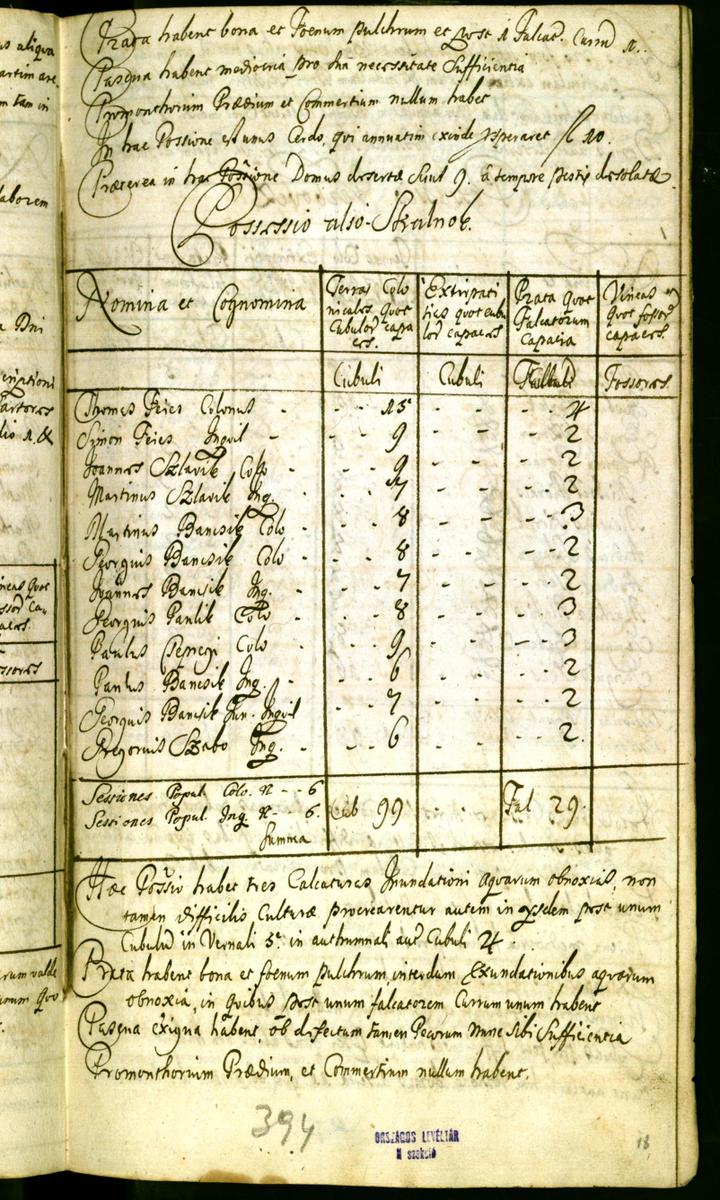 Prata habent bona et Foenum pulchrum et post 1 Falcat. Currū 1.
Pascua habent mediocria pro sua necessitate Sufficientia
Promonthorium Prædium et Commertium nullum habet
In hac Possione est unus Cerdo, qui annuatim exinde fl 10.
Præterea in hac Possione Domus desertæ sunt 9. â tempore pestis desolatæ.
Possessio alsó-Szkalnok.
Nomina et Cognomina
Terras Colo
nicales quot
Cubulorū capa
ces.
Extirpati
tias quot cubu
lorū capaces
Prata quot
Falcatorum
Capatia
Vineas
quot fossorū
capaces.
Cubuli Cubuli Fossores
Thomas Feies Colonus - - - 15 - - - 4
Simon Feies Inquil - - - 9 - - - 2
Joannes Szlavik Colo - - - 9 - - - 2
Martinus Szlavik Inq. - - - 7 - - - 2
Martinus Bancsik Colo - - 8 - - - 3
Georgius Bancsik Colo - - - 8 - - - 2
Joannes Bancsik Inq. - - - 7 - - - 2
Georgius Paulik Colo - - 8 - - - 3
Paulus Colo - - 9 - - - 3
Paulus Bancsik Inq. - - - 6 - - - 2
Georgius Bancsik Jun. Inquil - - 7 - - - 2
Gregorius Szabo Inq. - - - 6 - - - 2.
Sessiones Popul. Colo. N - - 6
Sessiones Popul. Inq. N - - 6. Cub 99 Fal 29.
Summa
Hæc Possio habet tres Calcaturas Inundationi aquarum obnoxias, non
tamen difficilis Culturæ procrearentur autem in ijsdem post unum
Cubulū in Vernali 5. in authumnali aut Cubuli 4.
Prata habent bona et foenum pulchrum, interdum Exundationibus aquarum
obnoxia, in quibus post unum falcatorem Currum unum habent
Pascua exigua habent, ob defectum tamen Pecorum nunc sibi Sufficientia
Promonthorium Prædium, et Commertium nullum habent.
394
ORSZÁGOS LEVÉLTÁR
N szekció
18